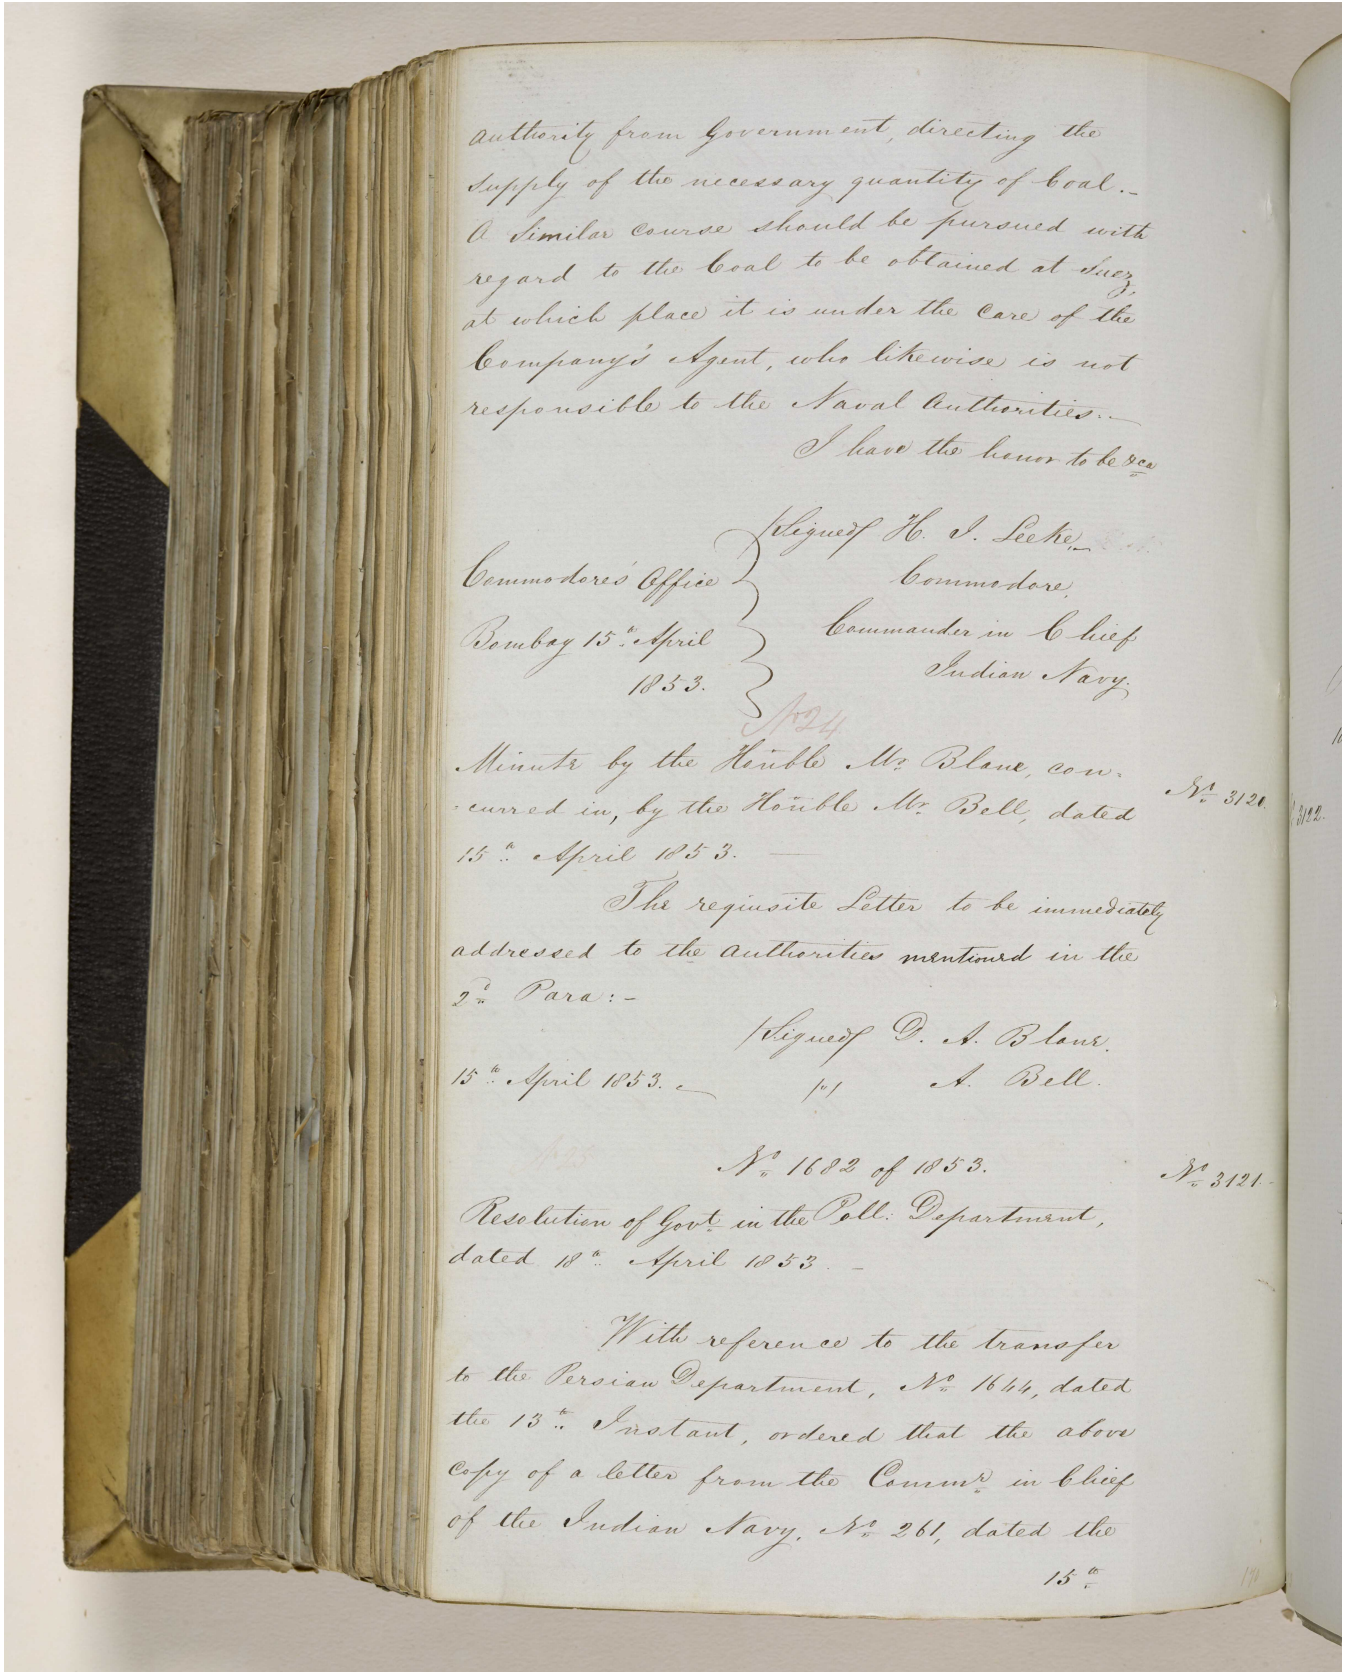 authority from Government, directing the
supply of the necessary quantity of Coal._
A Similar course should be pursued with
regard to the Coal to be obtained at Suez,
at which place it is under the Care of the
Company's Agent, who likewise is not
responsible to the Naval Authorities._
I have the honor to be &ca
/Signed/ H. J. Leeke,
Commodore's Office
Commodore,
Bombay 15th April
Commander in Chief
1853.
Indian Navy.
No 24
Minute by the Honble Mr Blane, con=
=curred in, by the Honble Mr Bell, dated
No 3120.
15th April 1853. —
The requisite Letter to be immediately
addressed to the Authorities mentioned in the
2d Para:-
/Signed/ D. A. Blane.
15th April 1853. _ /"/ A. Bell.
No 1682 of 1853.
No 3121.
Resolution of Govt in the Poll: Department,
dated 18th April 1853. _
With reference to the transfer
to the Persian Department, No 1644, dated
the 13th Instant, ordered that the above
copy of a letter from the Commr in Chief
of the Indian Navy, No 261, dated the
15th
3122.